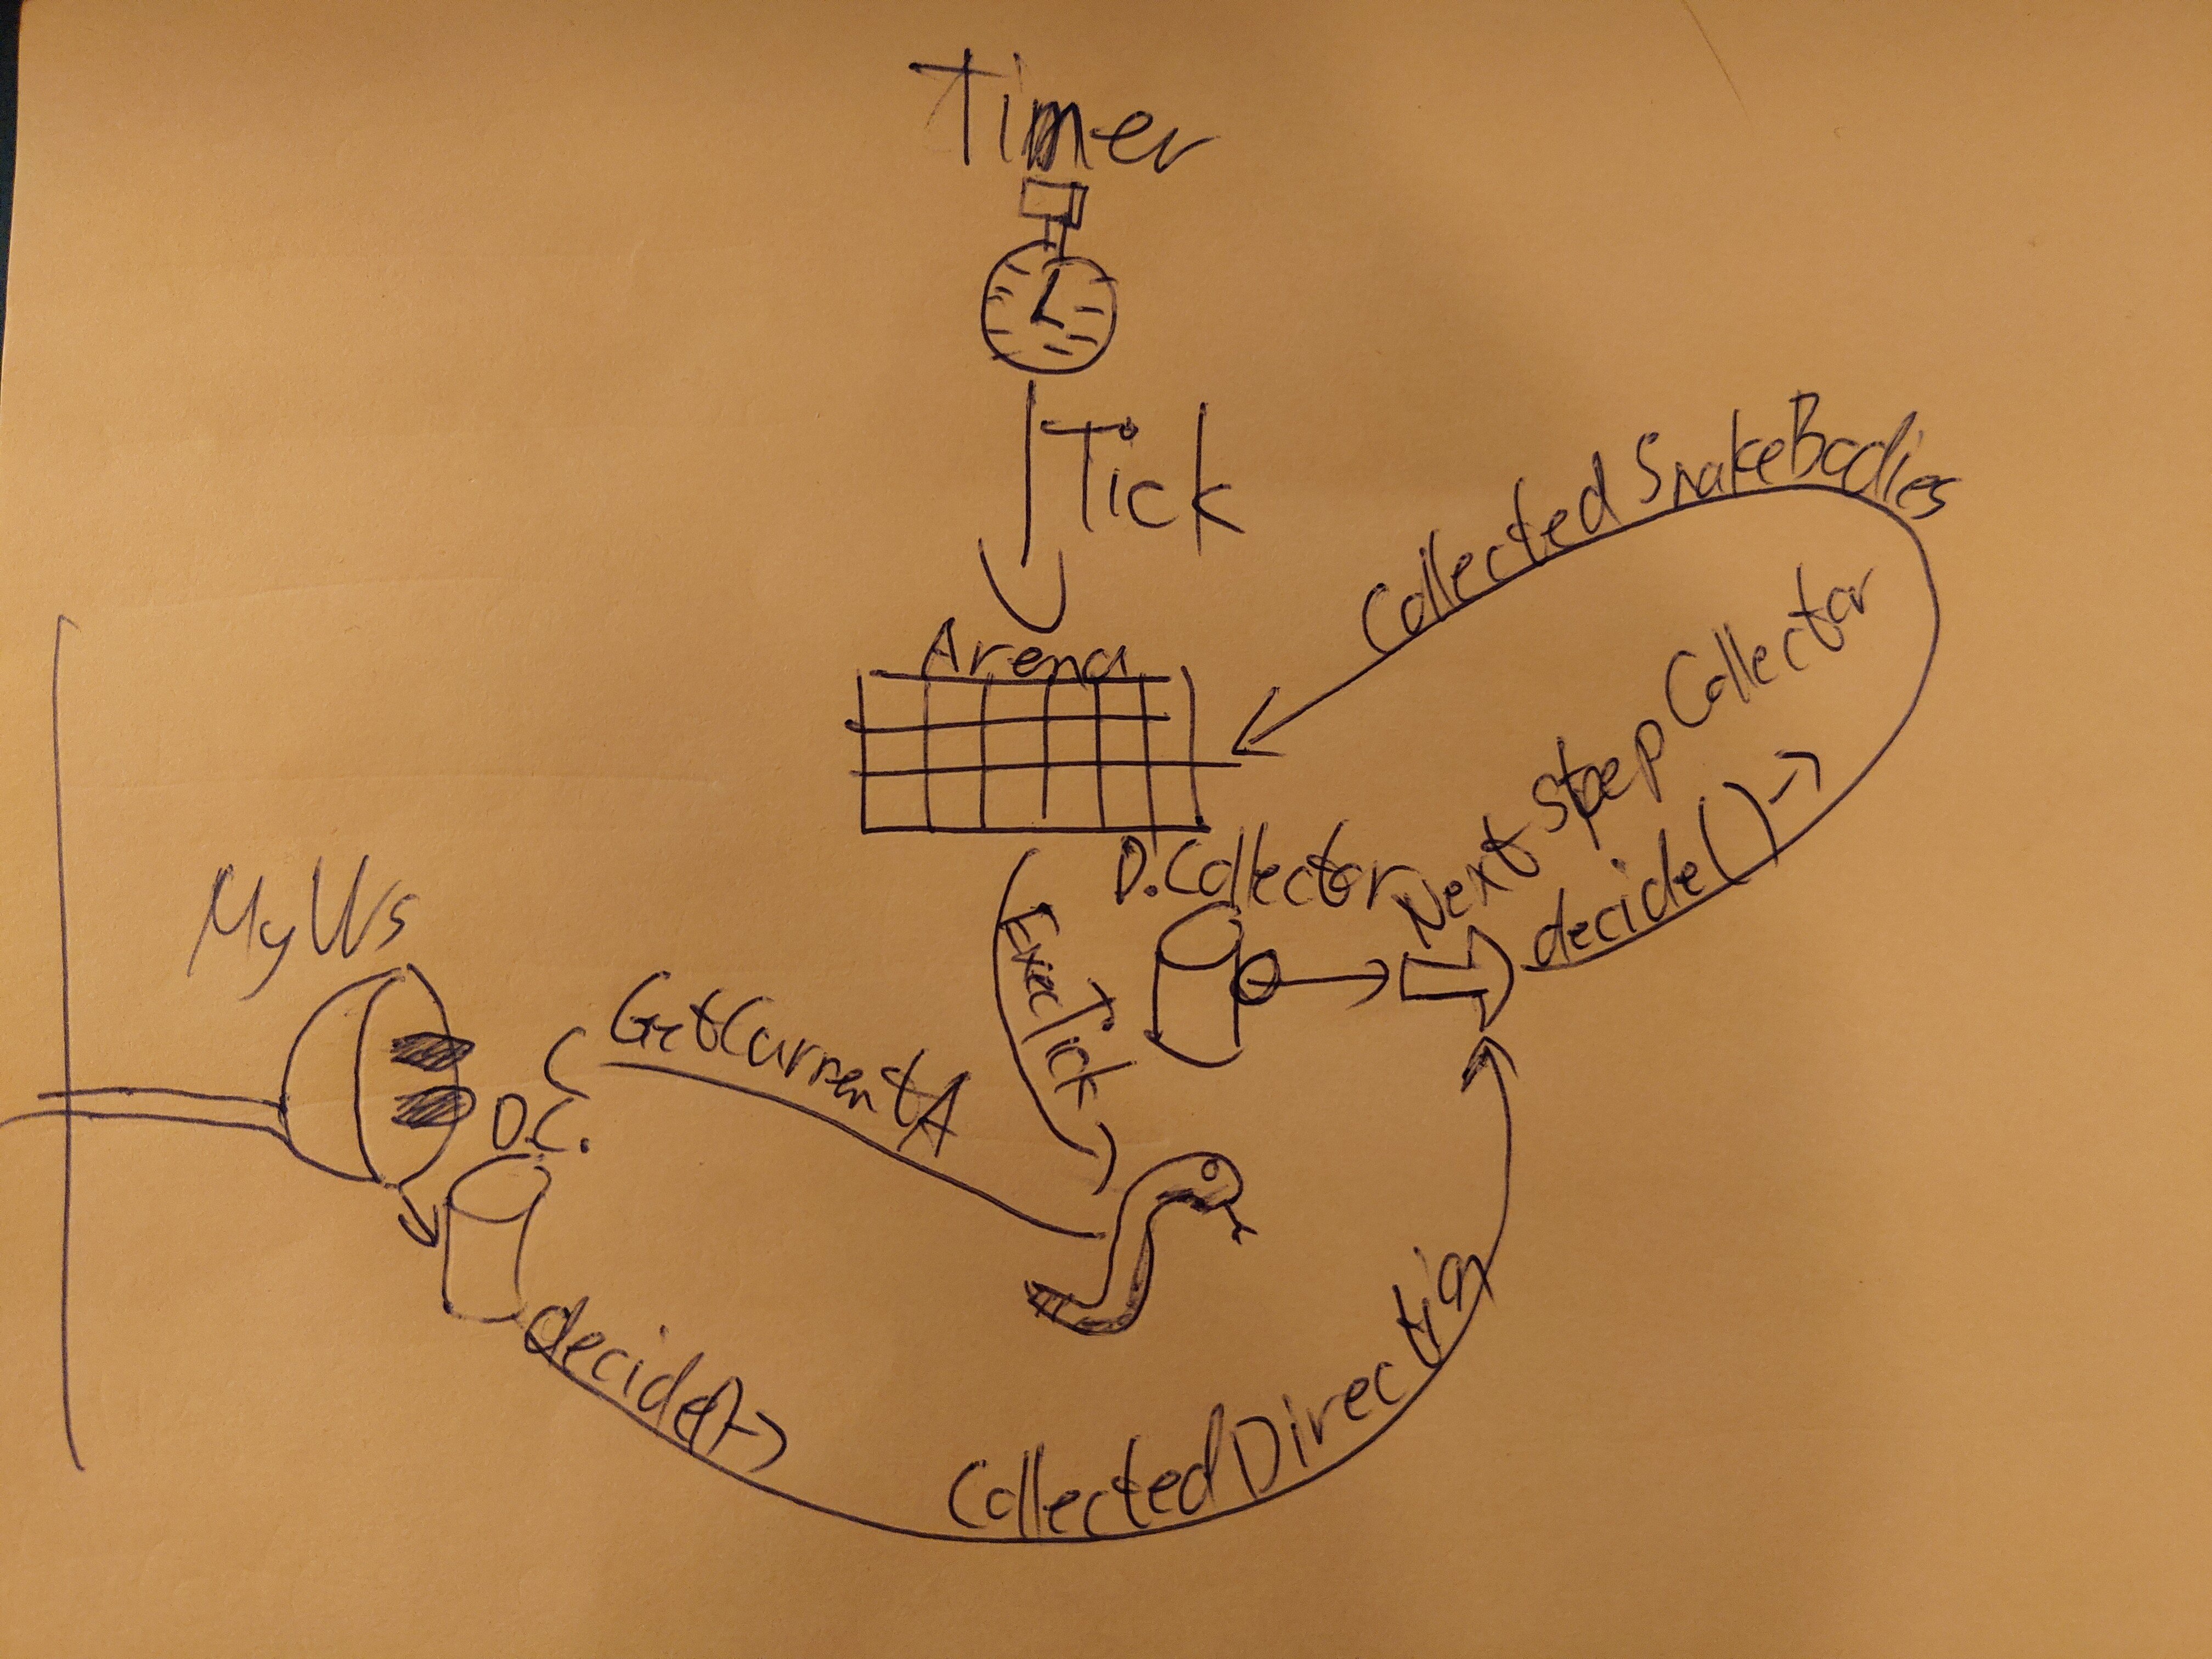 Timer
Tick
Collected SnakeBodies
Arena
Next Step Collector
decide() ->
D.Collector
ExecTick
MyWs
GetCurrentA
D.C.
decide() ->
CollectedDirection